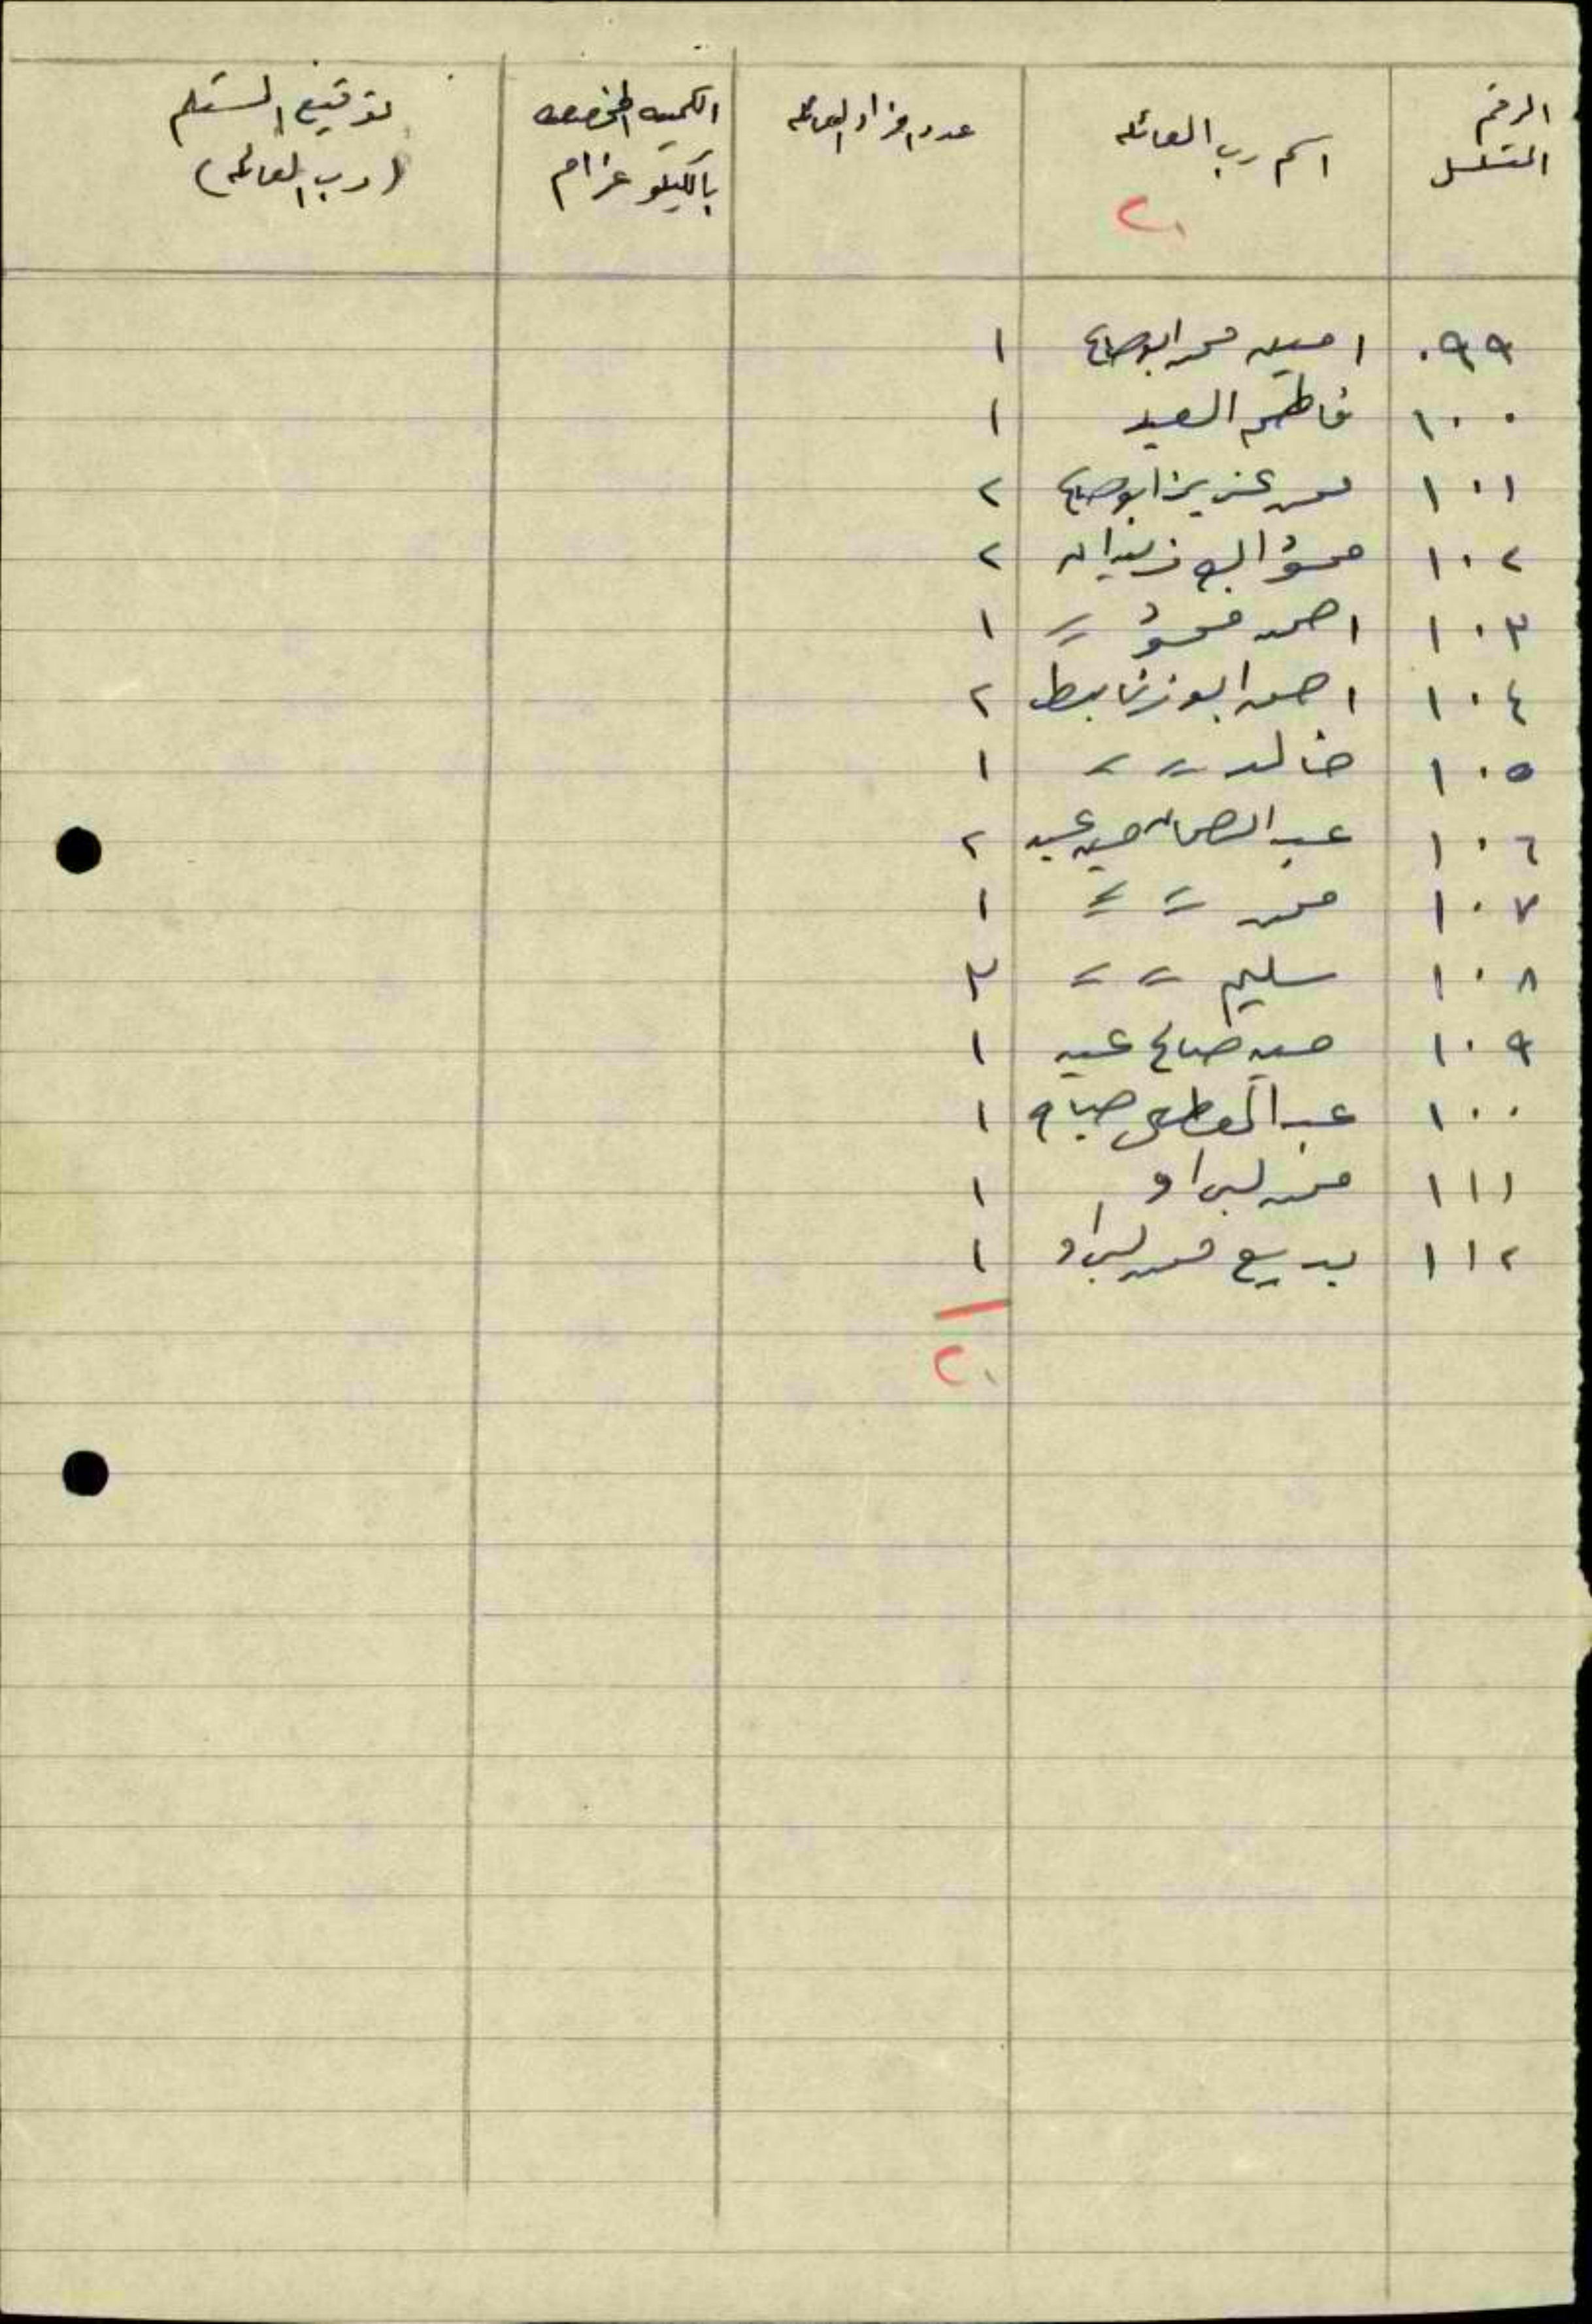 الرقم المتسلسل | اسم رب العائله | عدد افراد العائله | الكميه المخصصه بالكيلو غرام | توقيع المستلم (رب العائله)
٢٠
٠٩٩ امين محمد ابو صالح ١
١٠٠ فاطمه السعيد ١
١٠١ محمد عزيز ابو صالح ٢
١٠٢ محمود ابو زيدان ٢
١٠٣ احمد محمود 〃 ١
١٠٤ احمد ابو ٢
١٠٥ خالد 〃 〃 ١
١٠٦ عبد الرحمان حسين عبيد ٢
١٠٧ محمد 〃 〃 ١
١٠٨ سليم 〃 〃 ٣
١٠٩ حسين صالح عبيد ١
١٠٠ عبد المعطي صباح ١
١١١ محمد ١
١١٢ بديع محمد ١
٢٠